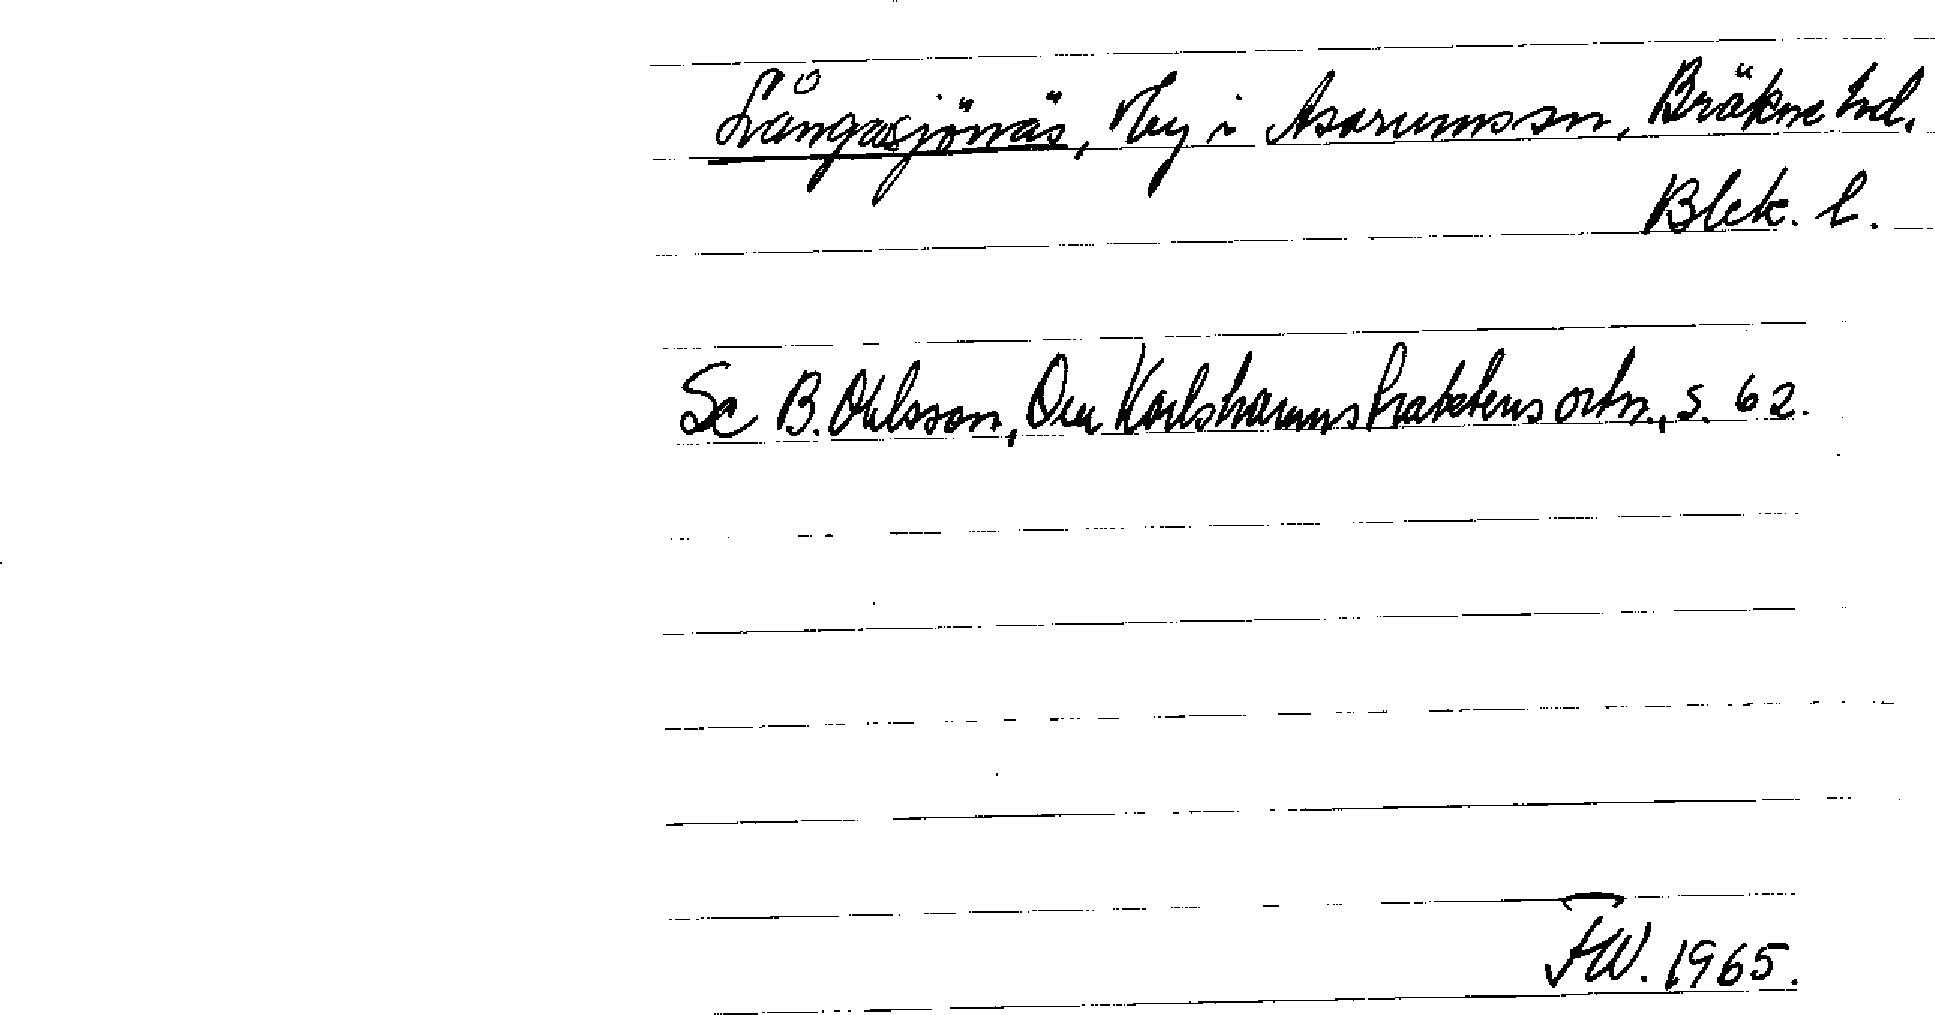 Långasjönäs, by i Asarums sn, Bräkne hd.
Blek. l.
Se B. Ohlsson, Om Karlshamnstraktens ortn., s. 62.
FW. 1965.